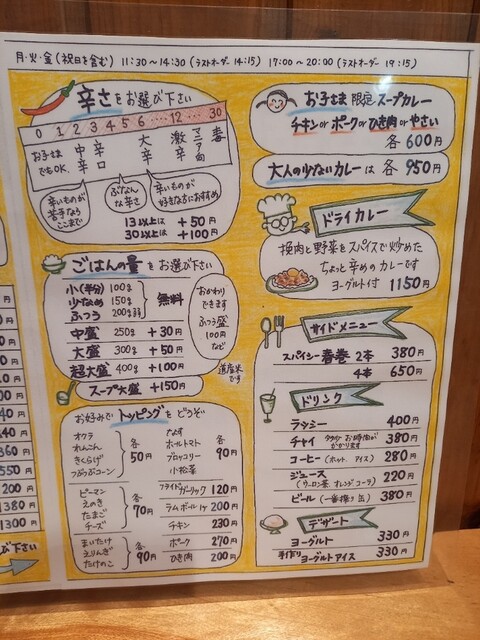 月・火・金(祝日を含む) 11:30~14:30(ラストオーダー14:15) 17:00~20:00(ラストオーダー19:15)
辛さをお選び下さい
0 1 2 3 4 5 6 ‥‥ 12 ‥‥ 30
お子さまでもOK 中辛 辛口 大辛 激辛 マニア向 毒
辛いものが苦手ならここまで
ぶなんな辛さ
辛いものが好きな方におすすめ
13以上は→ +50円
30以上は→ +100円
ごはんの量をお選び下さい
小(半分) 100g
少なめ 150g 無料
ふつう 200g弱
中盛 250g +30円
大盛 300g +50円
超大盛 400g +100円
おかわりできます
ふつう盛
100円
など
道産米です
スープ大盛 +150円
お好みでトッピングをどうぞ
オクラ
れんこん
きくらげ
つぶつぶコーン
各50円
なす
ホールトマト
ブロッコリー
小松菜
各90円
ピーマン
えのき
たまご
チーズ
各70円
まいたけ
えりんぎ
たけのこ
各90円
フライドガーリック 120円
ラムボール1ヶ 200円
チキン 230円
ポーク 270円
ひき肉 200円
お子さま限定スープカレー
チキンorポークorひき肉orやさい
各600円
大人の少ないカレーは各950円
ドライカレー
挽肉と野菜をスパイスで炒めた
ちょっと辛めのカレーです
ヨーグルト付 1150円
サイドメニュー
スパイシー春巻 2本 380円
4本 650円
ドリンク
ラッシー 400円
チャイ 380円
コーヒー(ホット、アイス) 280円
ジュース 220円
(ウーロン茶 オレンジ コーラ)
ビール(一番搾り缶) 380円
デザート
ヨーグルト 330円
手作りヨーグルトアイス 330円
360
550
200
1380
1300
び下さい